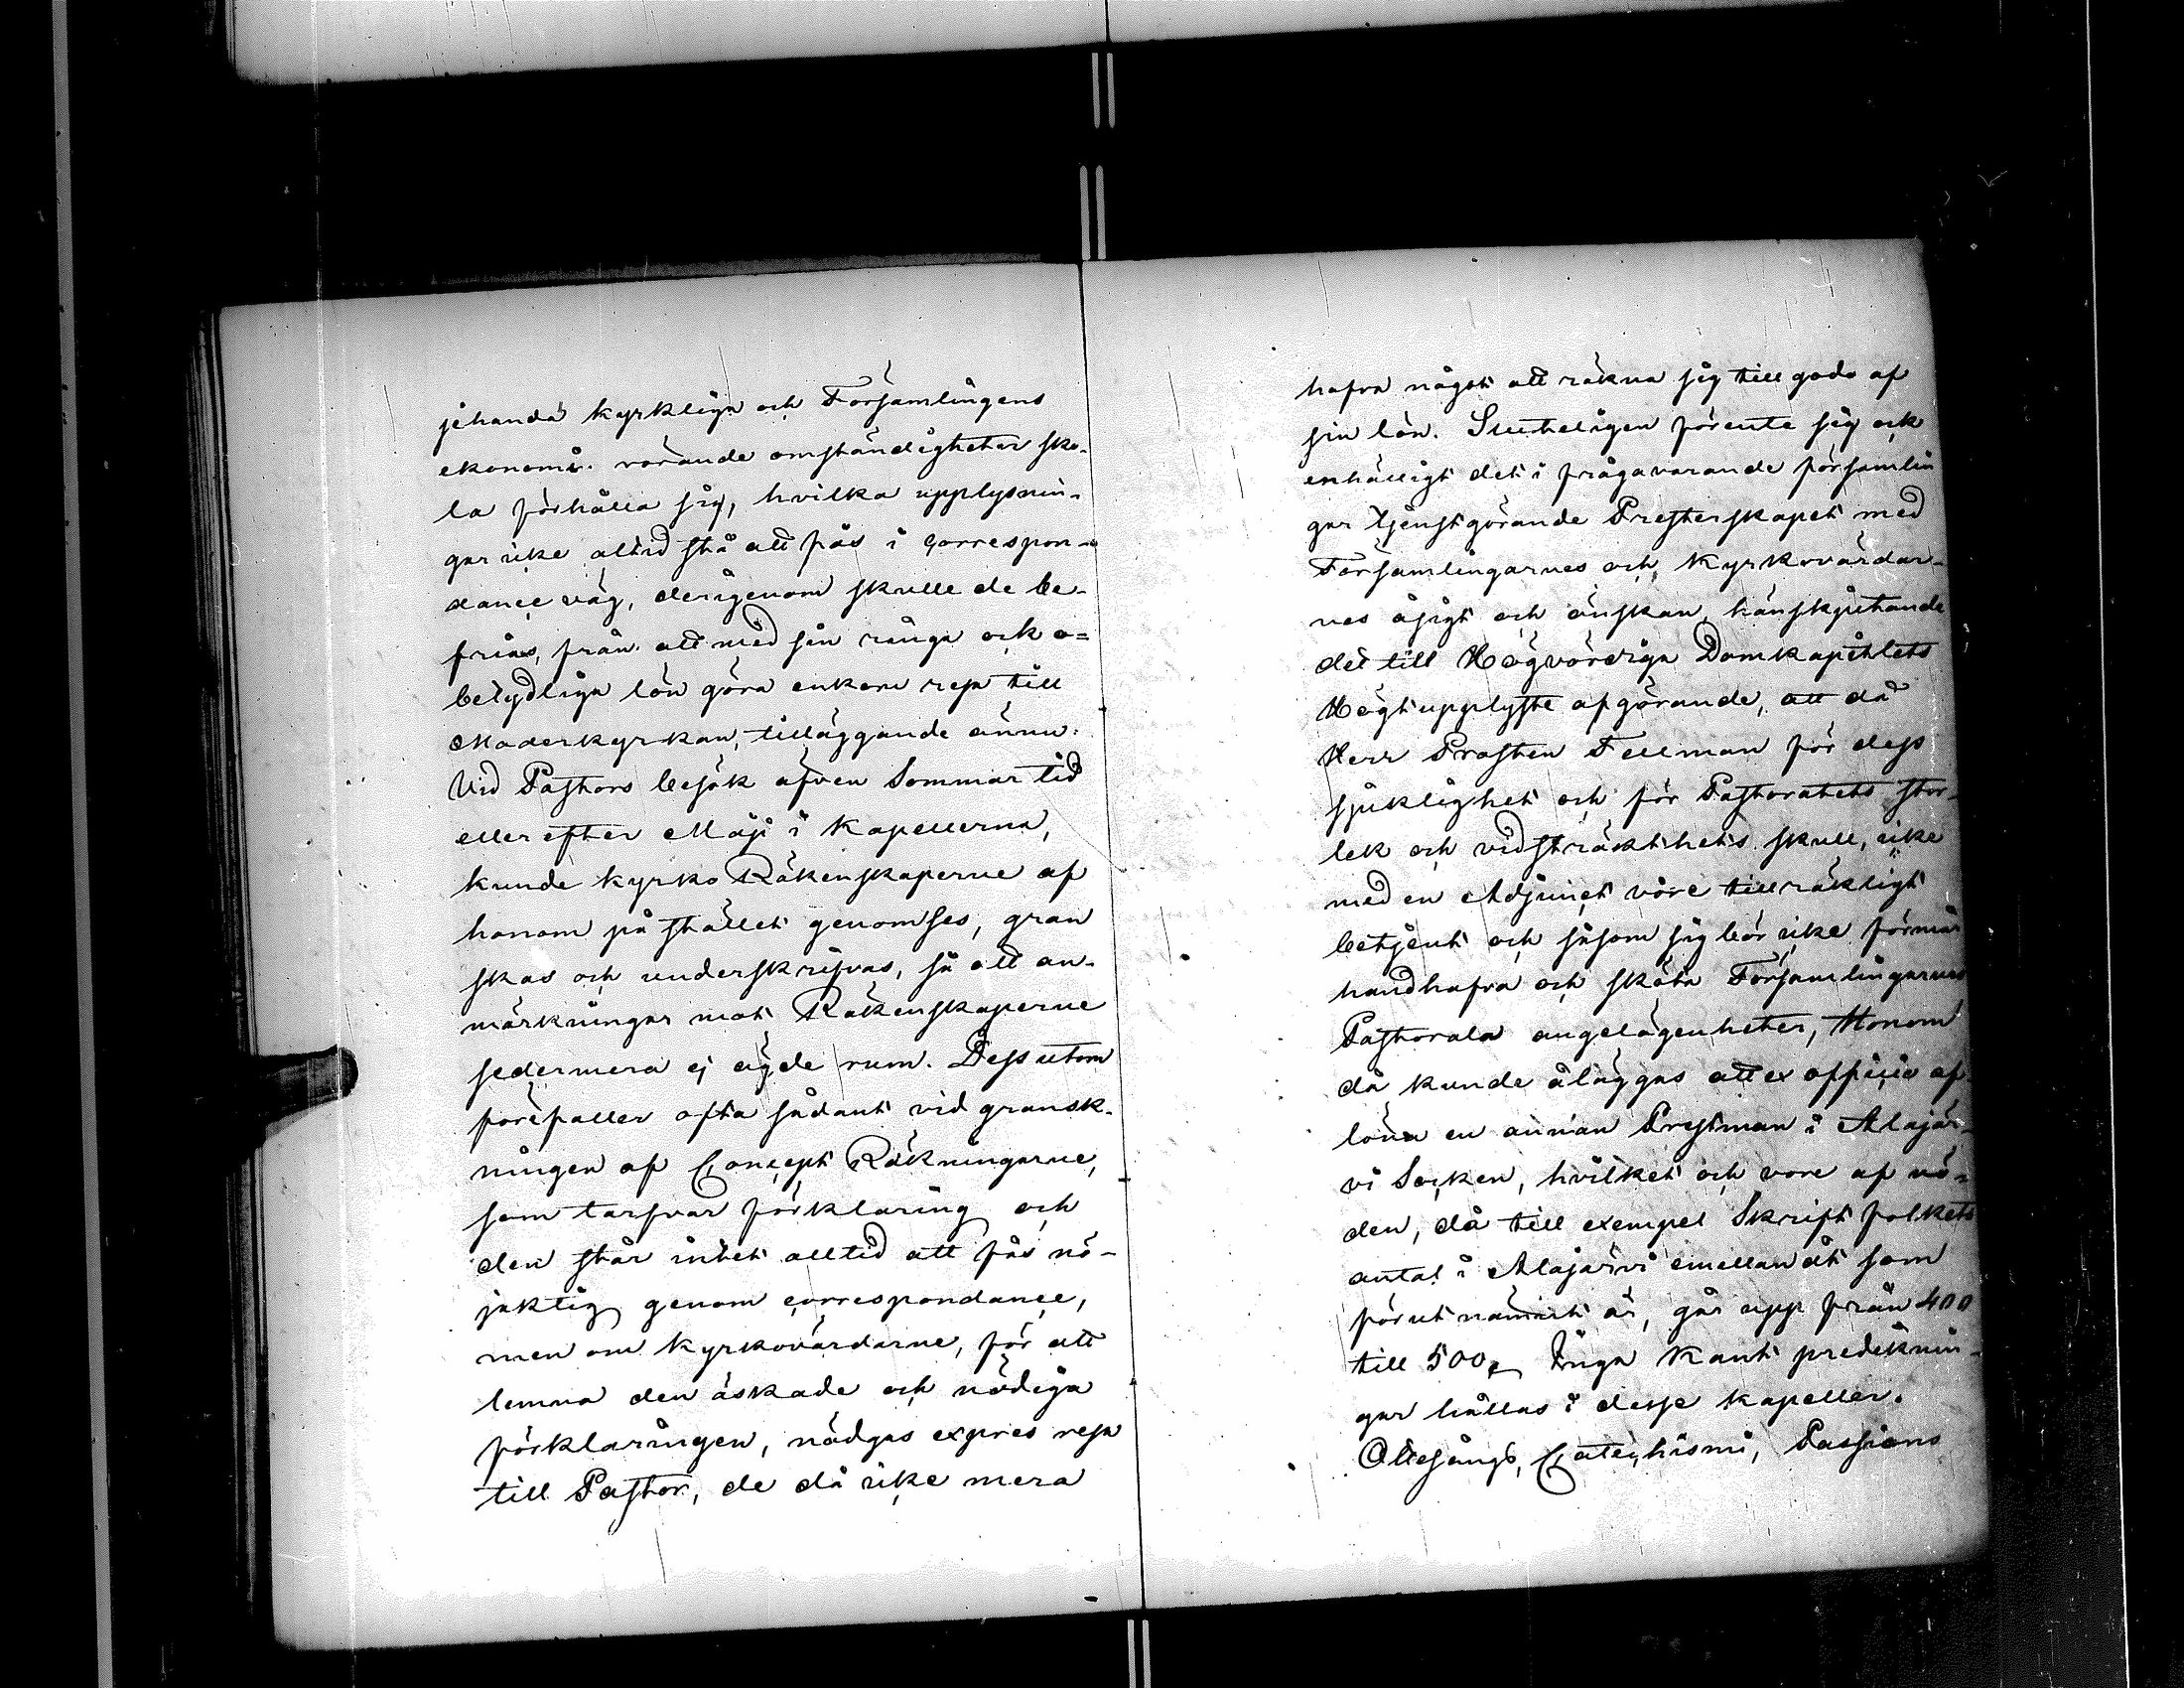 jehanda kyrkliga och Församlingens
ekonomi rörande omständigheter sko-
la förhålla sig, hvilka upplysnin-
gar icke altid stå att fås i correspon-
dance väg, derigenom skulle de be-
frias, från att med sin ringa och o=
betydliga lön göra enkom resa till
Moderkyrkan, tilläggande ännu:
Vid Pastors besök äfven Sommar tid
eller efter Maji i Kapellerna,
kunde kyrko Räkenskaperne af
honom på stället genomses, gran
skas och underskrifvas, så att an-
märkningar mot Räkenskaperne
sedermera ej ägde rum. Dessutom
förefaller ofta sådant vid gransk-
ningen af Concept Räkningarne,
som tarfvar förklaring och
den står intet alltid att fås nö-
jaktig genom correspondance,
men om Kyrkovärdarne, för att
lemna den äskade och nödiga
förklaringen, nödgas expres resa
till Pastor, de då icke mera
hafva något att räkna sig till godo af
sin lön. Slutheligen förente sig och
enhälligt det i frågavarande församlin
gar tjenstgörande Presterskapet med
Församlingarnes och Kyrkovärdar-
nes åsigt och önskan hänskjutande
det till Högvördiga Domkapitlets
Högtupplyste afgörande, att då
Herr Prosten Fellman för dess
sjuklighet och för Pastoratets stor-
lek och vidsträckthets skull, icke
med en Adjunct vore tillräkligt
betjent och såsom sig bör icke förmår
handhafva och sköta Församlingarnes
Pastorala angelägenheter, Honom
då kunde åläggas att ex officio af-
löna en annan Prestman i Alajär-
vi Socken, hvilket och vore af nö-
den, då till exempel Skrift folkets
antal i Alajärvi emellanåt som
förut nämnt är, går upp från 400
till 500. Inga Kant prediknin-
gar hållas i desse kapeller.
Ottesångs, Catechismi, Passions